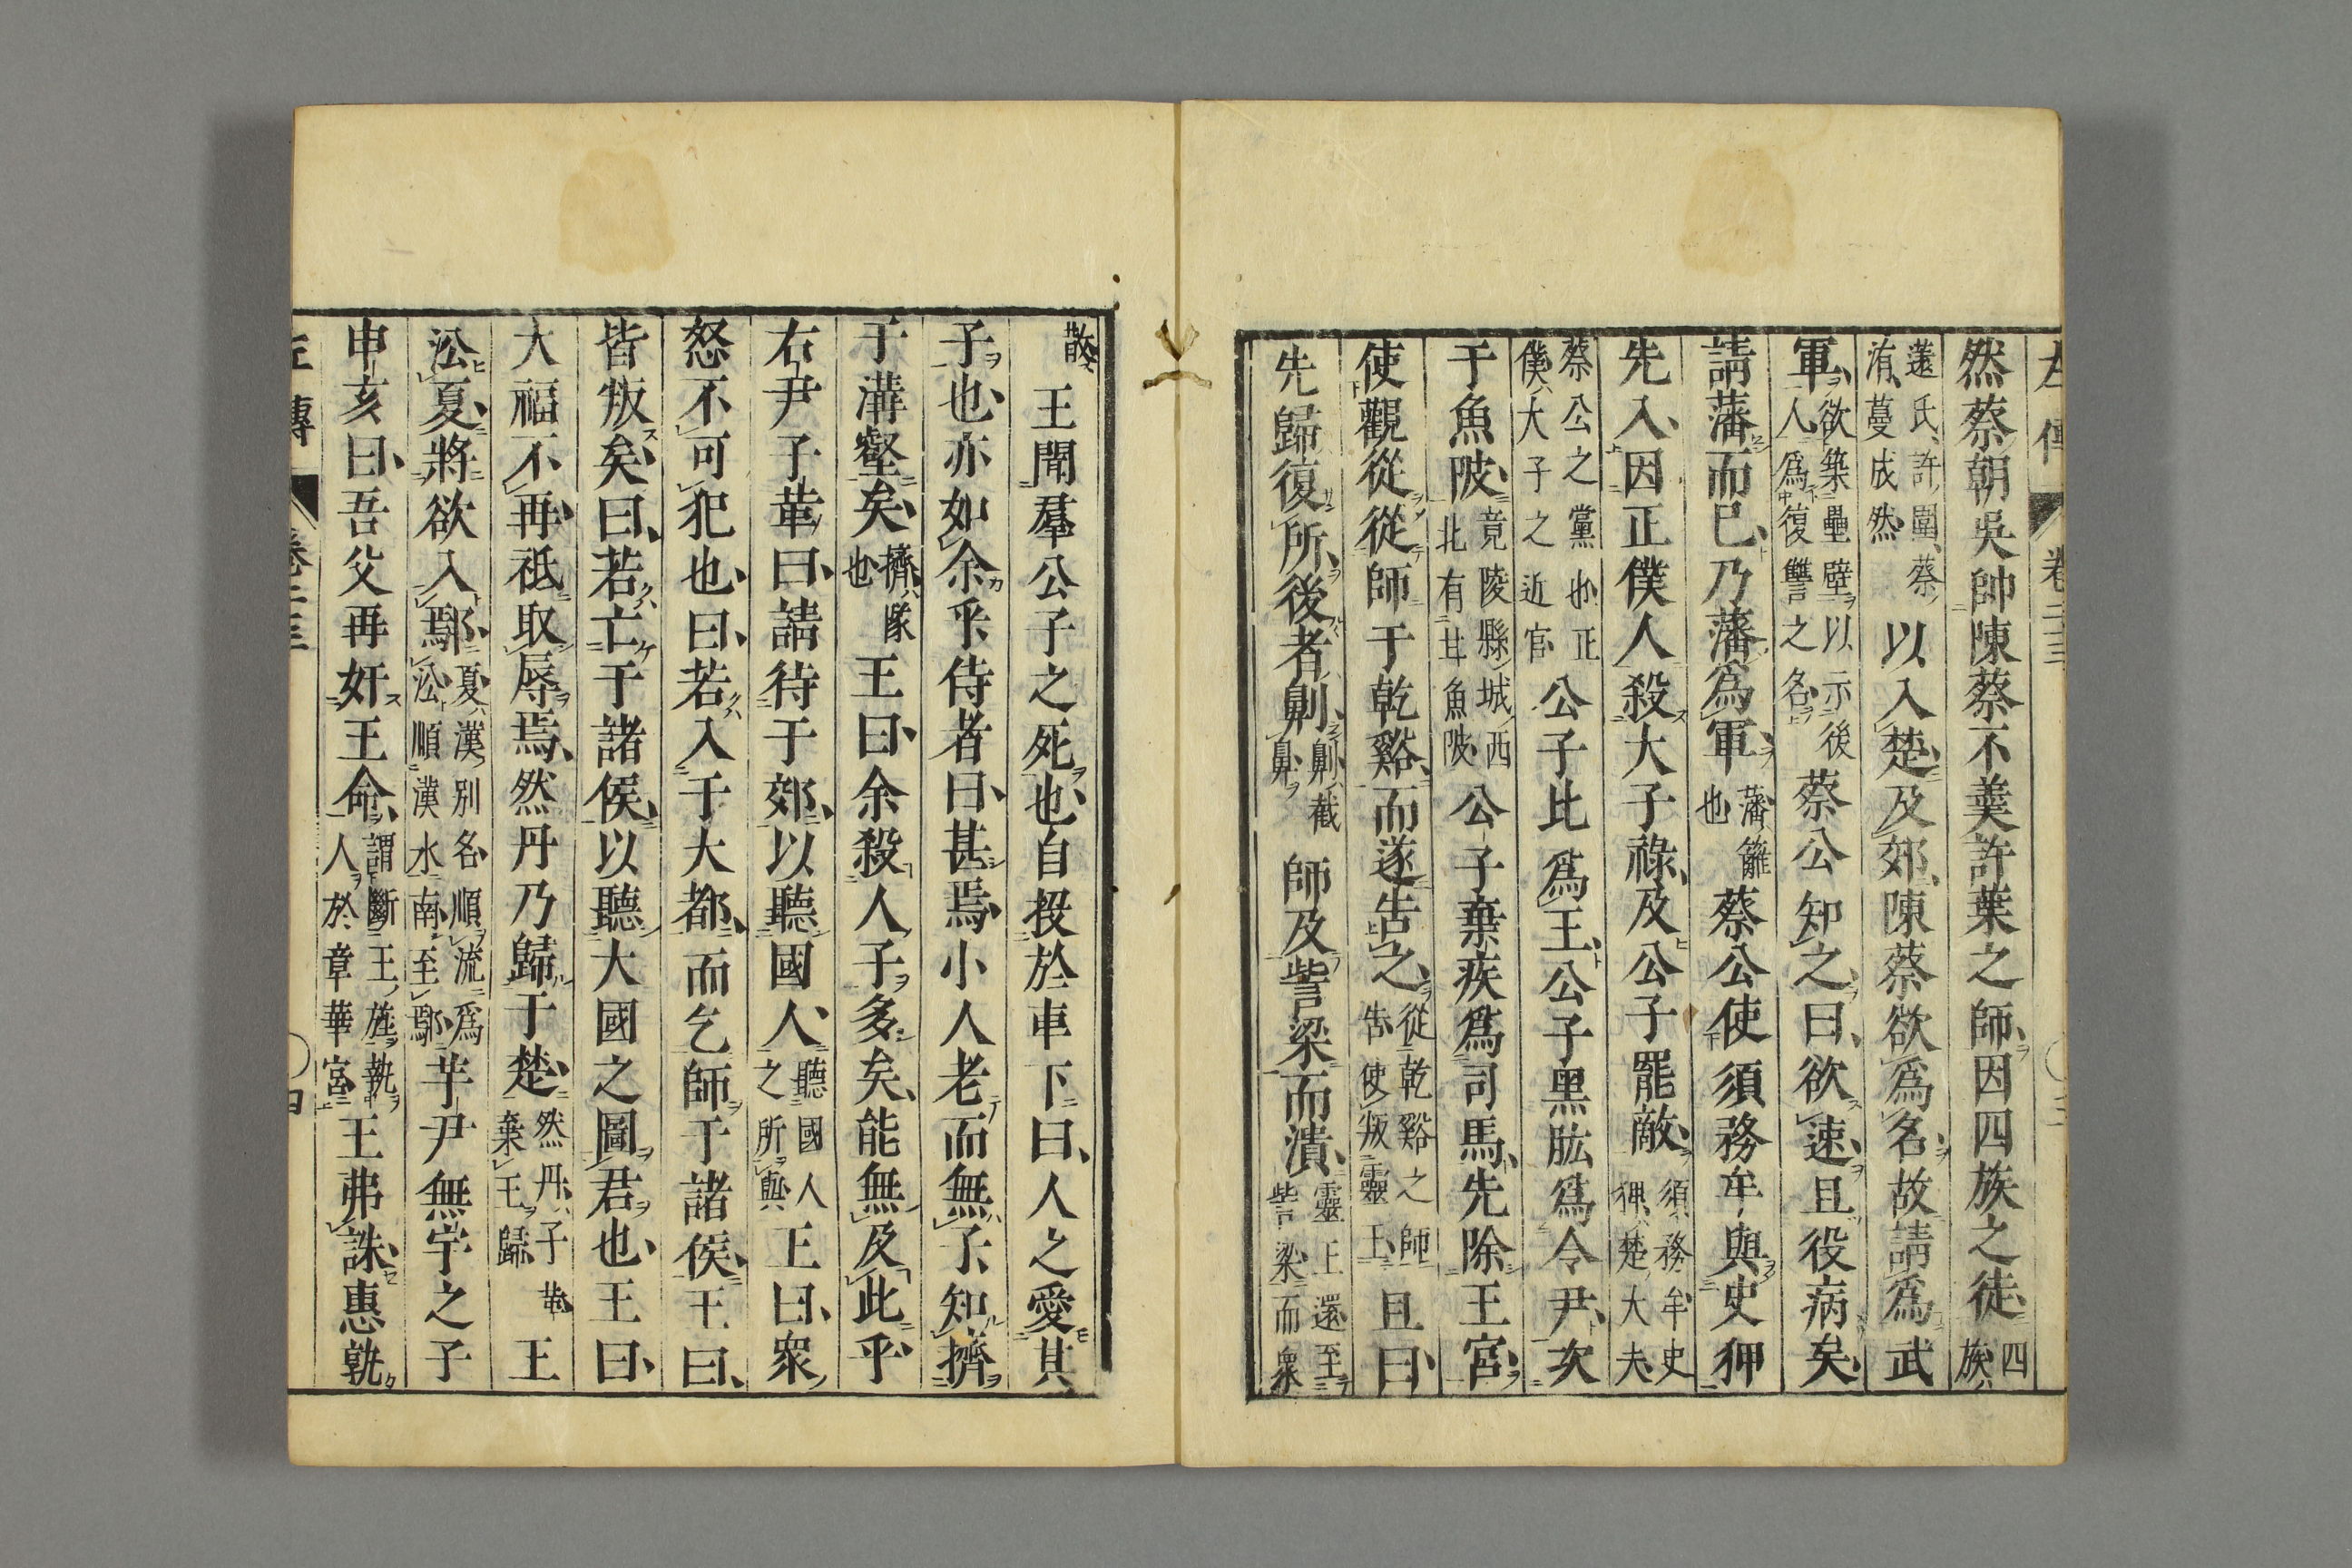 左傳 卷二十三 ○三
然蔡朝吳帥陳蔡不羹許葉之師因四族之徒四族
薳氏許圍蔡洧蔓成然以入楚及郊陳蔡欲爲名故請爲武
軍欲築壘壁以示後人爲復讐之名蔡公知之曰欲速且役病矣
請藩而已乃藩爲軍藩籬也蔡公使須務牟與史猈
先入因正僕人殺大子祿及公子罷敵須務牟史猈楚大夫
蔡公之黨也正僕大子之近官公子比爲王公子黑肱爲令尹次
于魚陂竟陵縣城西北有甘魚陂公子棄疾爲司馬先除王宮
使觀從從師于乾谿而遂告之從乾谿之師告使叛靈王且曰
先歸復所後者劓劓截鼻師及訾梁而潰靈王還至訾梁而衆
散王聞羣公子之死也自投於車下曰人之愛其
子也亦如余乎侍者曰甚焉小人老而無子知擠
于溝壑矣擠隊也王曰余殺人子多矣能無及此乎
右尹子革曰請待于郊以聽國人聽國人之所與王曰衆
怒不可犯也曰若入于大都而乞師于諸侯王曰
皆叛矣曰若亡于諸侯以聽大國之圖君也王曰
大福不再祗取辱焉然丹乃歸于楚然丹子革棄王歸王
沿夏將欲入鄢夏漢別名順流爲沿順漢水南至鄢芋尹無宇之子
申亥曰吾父再奸王命謂斷王旌執人於章華宮王弗誅惠孰
左傳 卷二十三 ○四